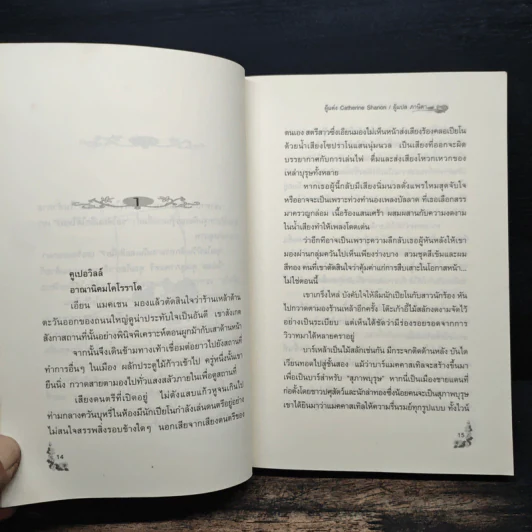 1
คูเปอวิลล์
อาณานิคมโคโรราโด
เอียน แมคเซน มองแล้วตัดสินใจว่าร้านเหล้าด้าน
ตะวันออกของถนนใหญ่ดูน่าประทับใจเป็นอันดี เขาสังเกต
สังกาสถานที่นั้นอย่างพินิจพิเคราะห์ตอนผูกม้ากับเสาด้านหน้า
จากนั้นจึงเดินข้ามทางเท้าเชื่อมต่อยาวไปยังสถานที่
ทำการอื่นๆ ในเมือง ผลักประตูไม้ก้าวเข้าไป ครู่หนึ่งนั้นเขา
ยืนนิ่ง กวาดสายตามองไปทั่วแสงสลัวภายในเพื่อดูสถานที่
เสียงดนตรีที่เปิดอยู่ ไม่ดังแสบแก้วหูจนเกินไป
ท่ามกลางควันบุหรี่ในห้องมีนักเปียโนกำลังเล่นดนตรีอยู่อย่าง
ไม่สนใจสรรพสิ่งรอบข้างใดๆ นอกเสียจากเสียงดนตรีของ
14
ผู้แต่ง Catherine Sharon / ผู้แปล ภานิตา
ตนเอง สตรีสาวซึ่งเอียนมองไม่เห็นหน้าส่งเสียงร้องคลอเปียโน
ด้วยน้ำเสียงโซปราโนแสนนุ่มนวล เป็นเสียงที่ออกจะผิด
บรรยากาศกับการเล่นไพ่ ดื่มและส่งเสียงโหวกเหวกของ
เหล่าบุรุษทั้งหลาย
หากเธอผู้นี้กลับมีเสียงนิ่มนวลดังแพรไหมสุดจับใจ
หรืออาจจะเป็นเพราะท่วงทำนองเพลงบัลลาด ที่เธอเลือกสรร
มาครวญกล่อม เนื้อร้องแสนเศร้า ผสมผสานกับความงดงาม
ในน้ำเสียงทำให้เพลงโดดเด่น
ว่าอีกทีอาจเป็นเพราะความลึกลับเธอผู้หันหลังให้เขา
มองผ่านกลุ่มควันไปเห็นเพียงร่างบาง สวมชุดสีเข้มและผม
สีทอง คนที่เขาตัดสินใจว่าคุ้มค่าแก่การสืบเสาะในโอกาสหน้า...
ไม่ใช่ตอนนี้
เขาเกร็งไหล่ บังคับใจให้ลืมนักเปียโนกับสาวนักร้อง หัน
ไปกวาดตามองร้านเหล้าอีกครั้ง โต๊ะเก้าอี้ไม้สลักงดงามจัดไว้
อย่างเป็นระเบียบ แต่เห็นได้ชัดว่ามีร่องรอยรอดจากการ
วิวาทมาได้หลายคราว
บาร์เหล้าเป็นไม้สลักเช่นกัน มีกระจกติดด้านหลัง บันได
เวียนทอดไปสู่ชั้นสอง แม้ว่าบาร์แมคคาสเทิลจะสร้างขึ้นมา
เพื่อเป็นบาร์สำหรับ "สุภาพบุรุษ" หากนี่เป็นเมืองชายแดนที่
ก่อตั้งโดยชาวปศุสัตว์และนักล่าทองซึ่งน้อยคนจะเป็นสุภาพบุรุษ
เขาได้ยินมาว่าแมคคาสเทิลให้ความรื่นรมย์ทุกรูปแบบ ทั้งไวน์
15